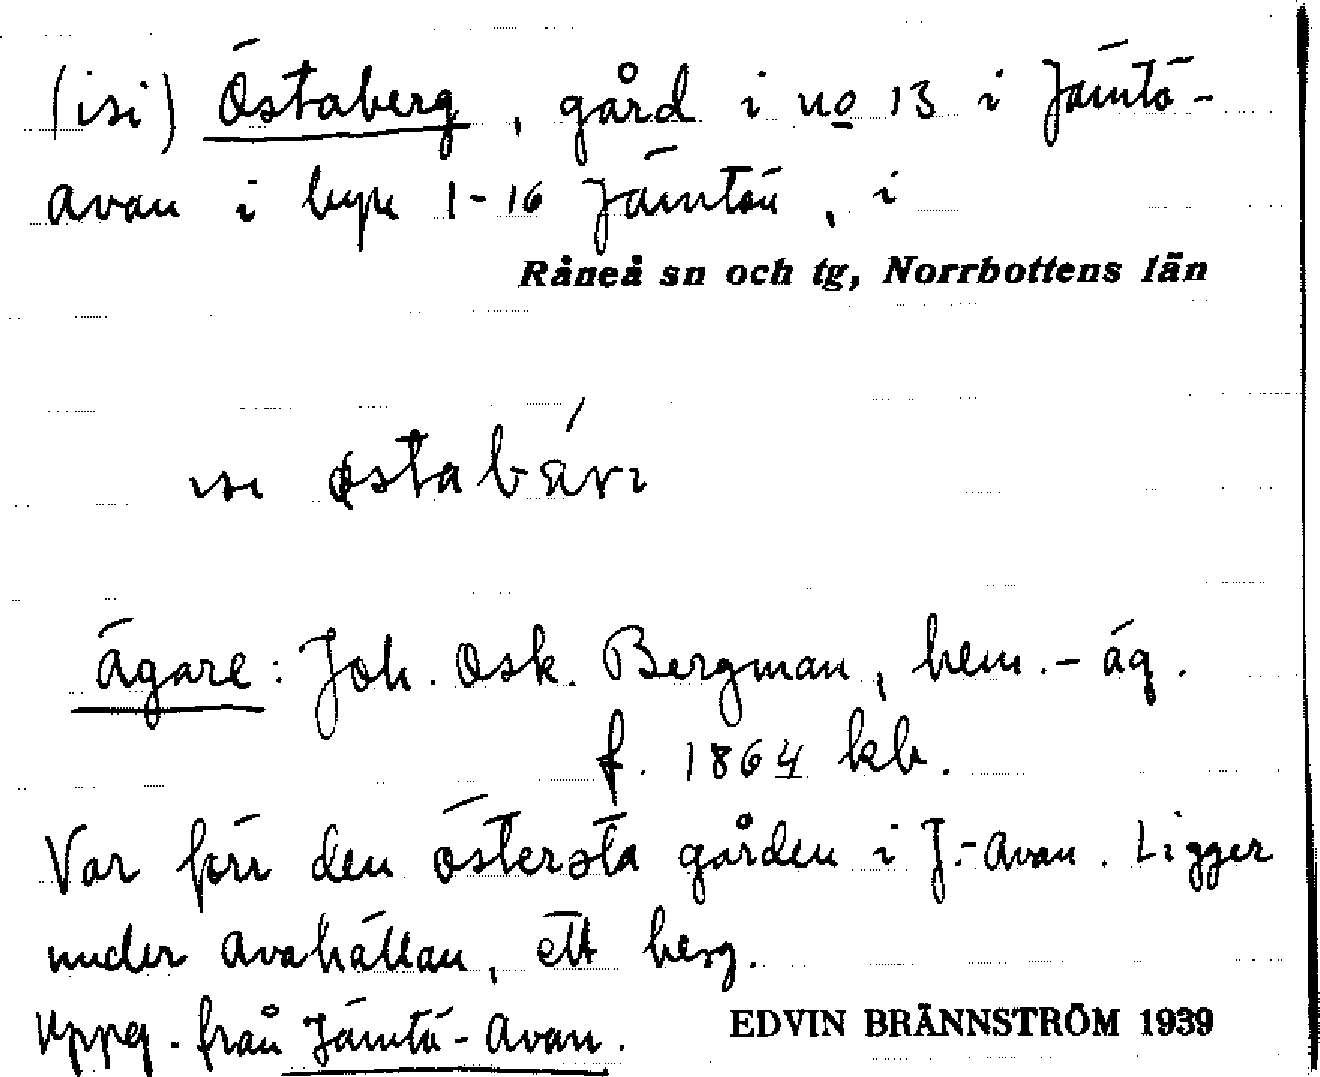 (isi) Östaberg, gård i no 13 i Jämtö-
avan i byn 1-16 Jämtön, i
Råneå sn och tg, Norrbottens län
isi østabäri
Ägare: Joh. Osk. Bergman, hem.-äg.
f. 1864 kb.
Var förr den östersta gården i J.-Avan. Ligger
under Avahällan, ett berg.
Uppg. från Jämtö-Avan.
EDVIN BRÄNNSTRÖM 1939